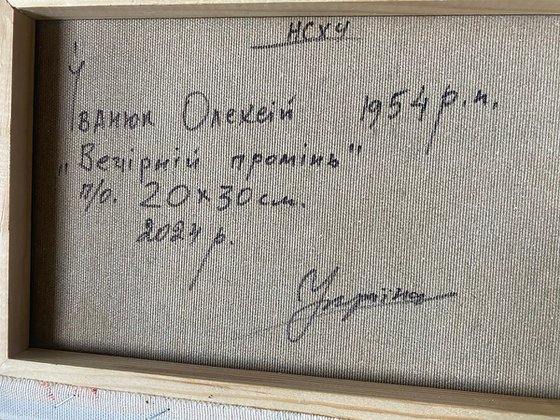 НСХУ
Іванюк Олексій 1954 р.н.
„Вечірній промінь"
п/о. 20х30см.
2024 р.
Україна